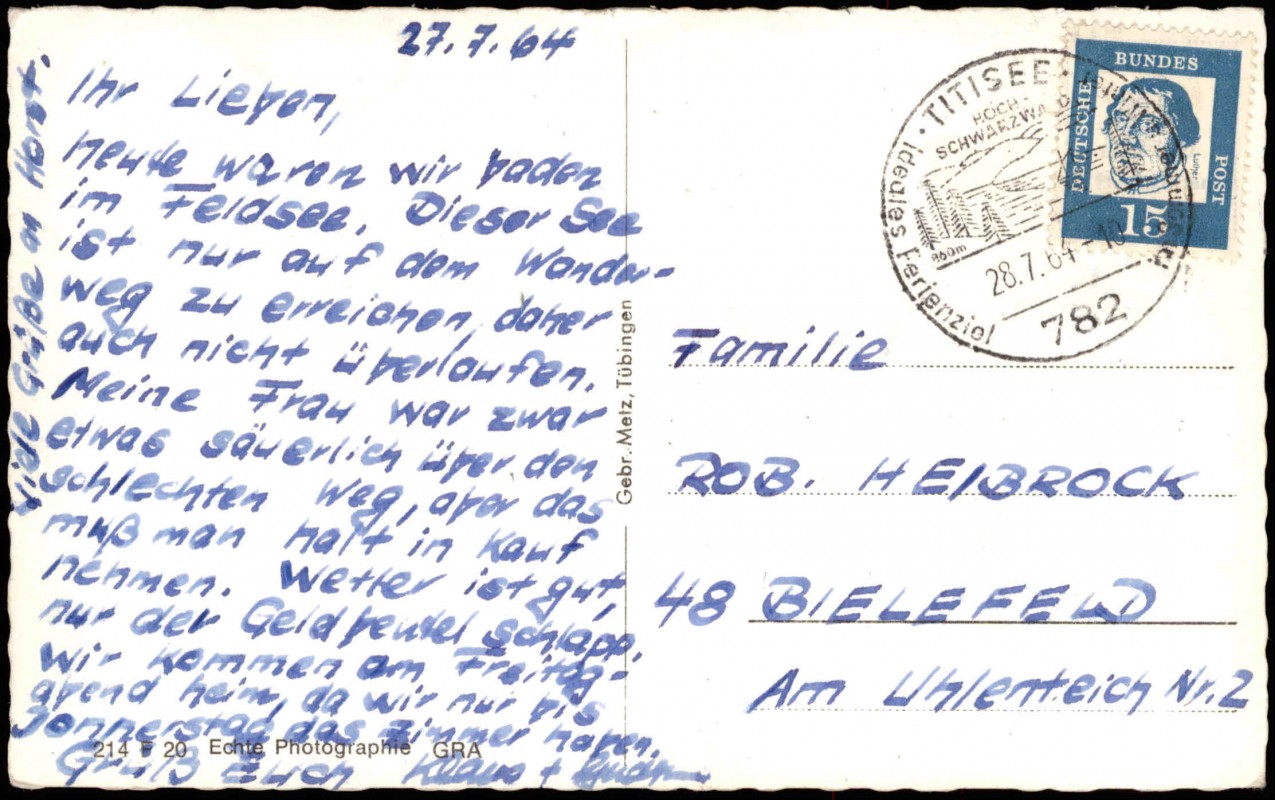 27.7.64
Ihr Lieben,
heute waren wir baden
im Feldsee. Dieser See
ist nur auf dem Wander-
weg zu erreichen, daher
auch nicht überlaufen.
Meine Frau war zwar
etwas säuerlich über den
schlechten Weg, aber das
muß man halt in Kauf
nehmen. Wetter ist gut,
nur der Geldbeutel schlapp.
Wir kommen am Freitag-
abend heim, da wir nur bis
Donnerstag das Zimmer haben.
Gruß Euch Klaus +
Viele Grüße an Horst.
214 F 20 Echte Photographie GRA
Gebr. Metz, Tübingen
TITISEE
HOCH-
SCHWARZWALD
860m
Ideales Ferienziel
28.7.64-10
782
DEUTSCHE
BUNDES
POST
Luther
15
Familie
ROB. HEIBROCK
48 BIELEFELD
Am Uhlenteich Nr. 2